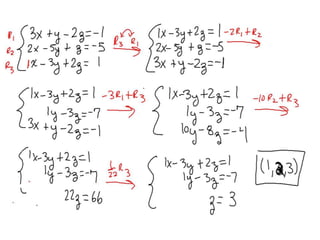 R1 3x+y-2z=-1
R2 2x-5y+z=-5
R3 1x-3y+2z=1
R3 R1
1x-3y+2z=1
2x-5y+z=-5
3x+y-2z=-1
-2R1+R2
1x-3y+2z=1
1y-3z=-7
3x+y-2z=-1
-3R1+R3
1x-3y+2z=1
1y-3z=-7
10y-8z=-4
-10R2+R3
1x-3y+2z=1
1y-3z=-7
22z=66
1/22 R3
1x-3y+2z=1
1y-3z=-7
z=3
(1,2,3)